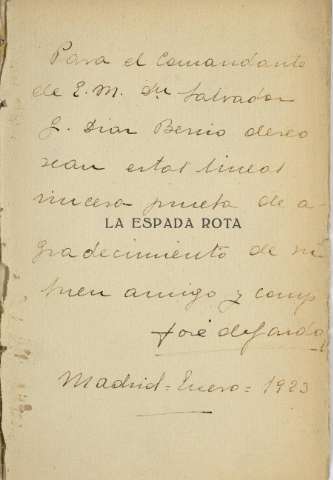 Para el Comandante
de E. M. Dn Salvador
G. Diaz Berrio deseo
sean estas lineas
sincera prueba de a-
LA ESPADA ROTA
gradecimiento de su
buen amigo y comp
José de
Madrid = Enero = 1923